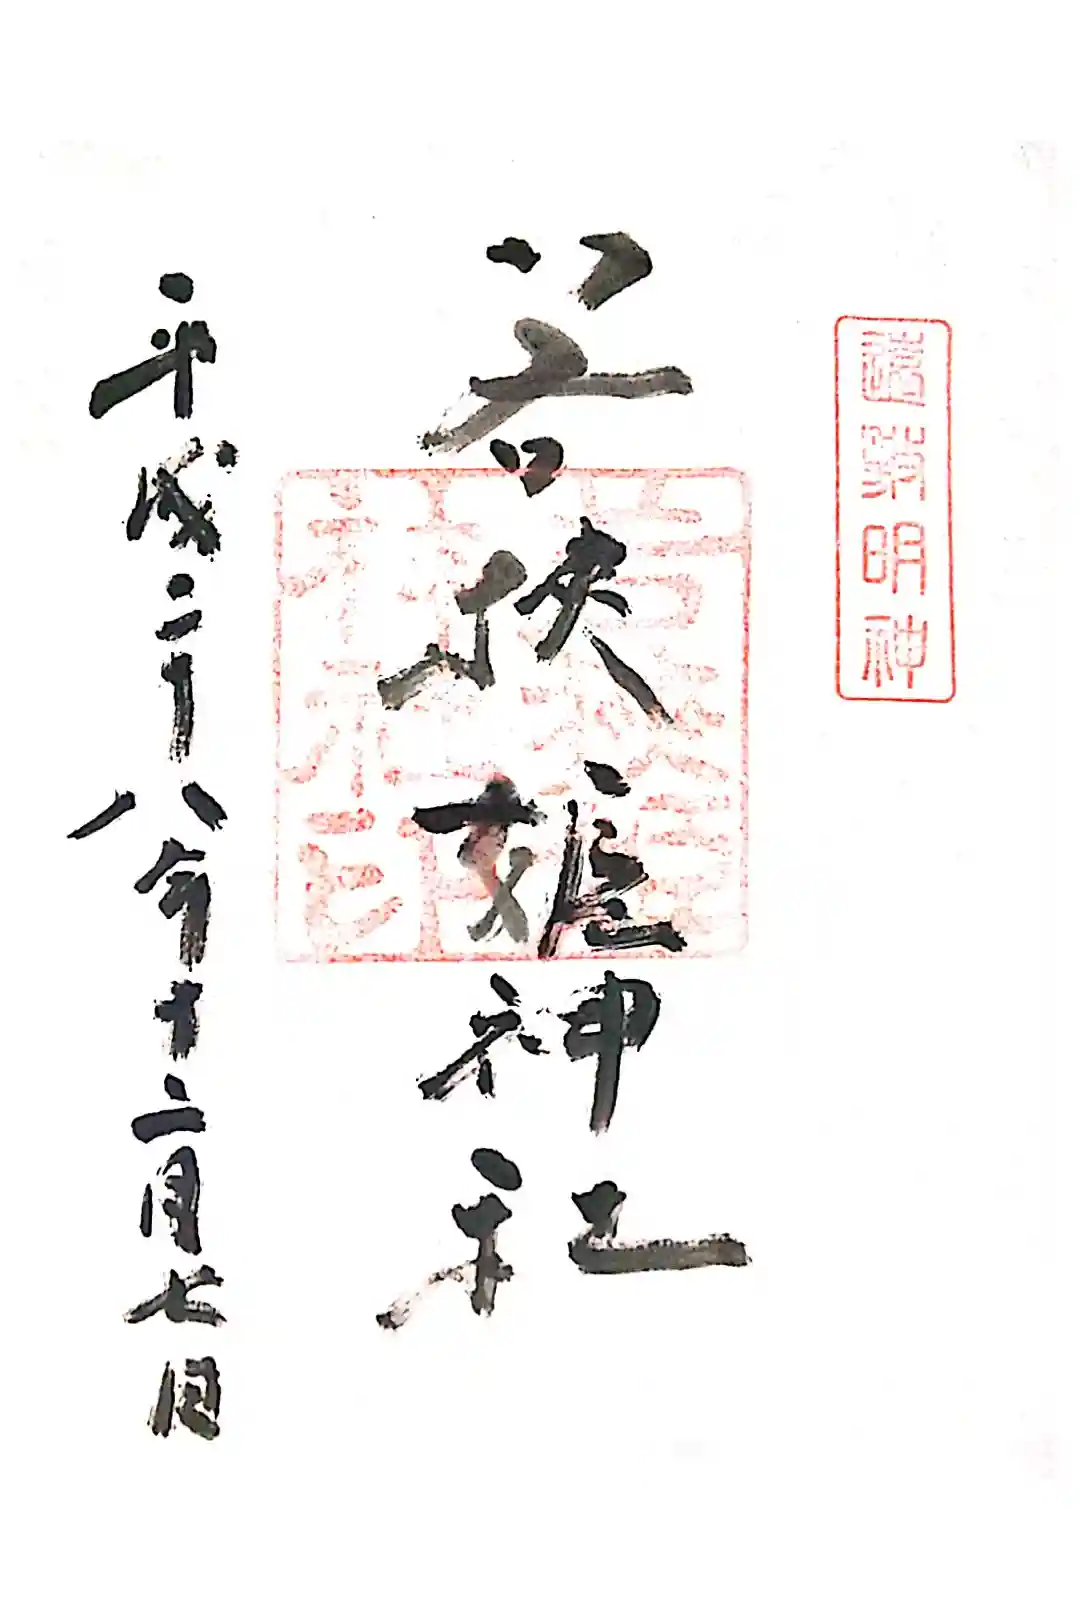 道弟明神
若狭姫神社
平成二十八年十二月七日